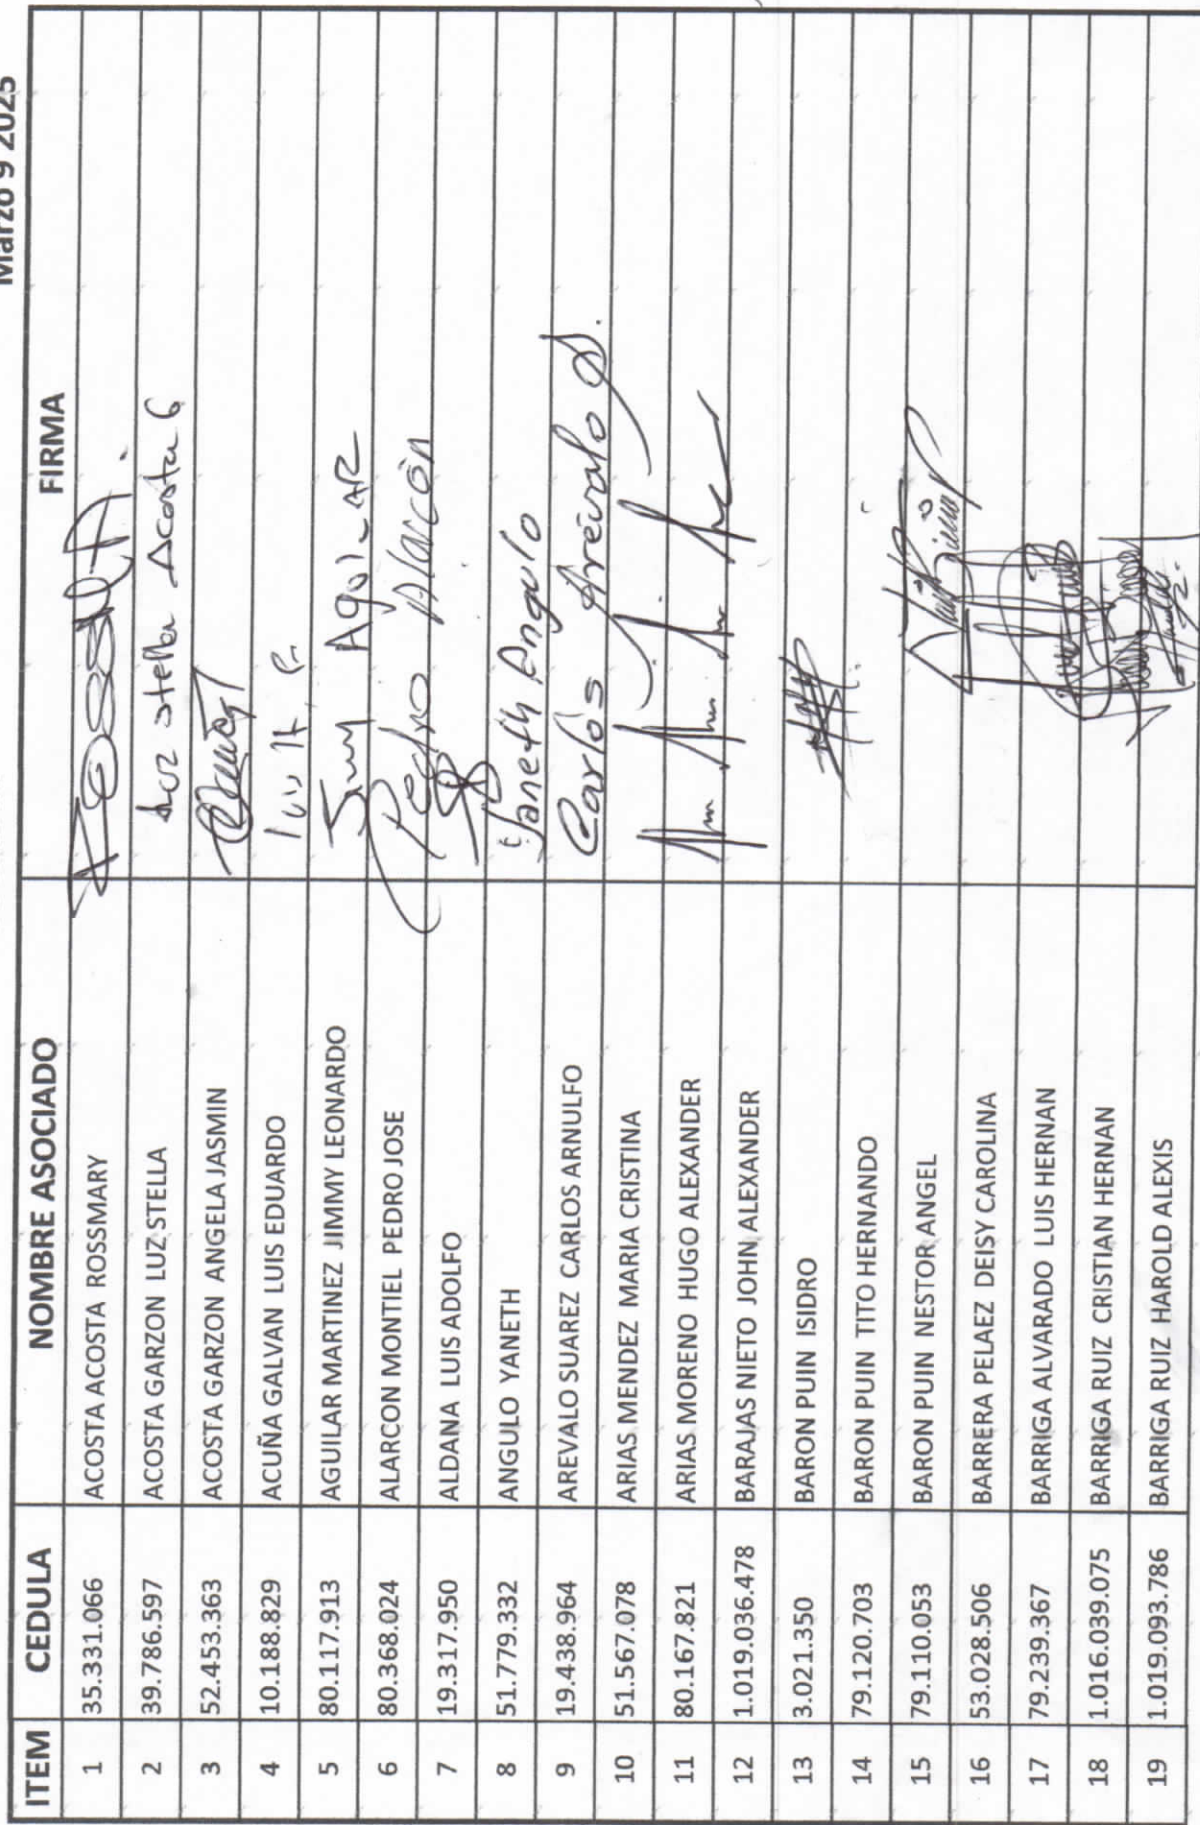 Marzo 9 2025
ITEM CEDULA NOMBRE ASOCIADO FIRMA
1 35.331.066 ACOSTA ACOSTA ROSSMARY
2 39.786.597 ACOSTA GARZON LUZ STELLA Luz stella Acosta G
3 52.453.363 ACOSTA GARZON ANGELA JASMIN
4 10.188.829 ACUÑA GALVAN LUIS EDUARDO
5 80.117.913 AGUILAR MARTINEZ JIMMY LEONARDO
6 80.368.024 ALARCON MONTIEL PEDRO JOSE Pedro Alarcón
7 19.317.950 ALDANA LUIS ADOLFO
8 51.779.332 ANGULO YANETH Janeth Angulo
9 19.438.964 AREVALO SUAREZ CARLOS ARNULFO Carlos Arévalo S.
10 51.567.078 ARIAS MENDEZ MARIA CRISTINA
11 80.167.821 ARIAS MORENO HUGO ALEXANDER
12 1.019.036.478 BARAJAS NIETO JOHN ALEXANDER
13 3.021.350 BARON PUIN ISIDRO
14 79.120.703 BARON PUIN TITO HERNANDO
15 79.110.053 BARON PUIN NESTOR ANGEL
16 53.028.506 BARRERA PELAEZ DEISY CAROLINA
17 79.239.367 BARRIGA ALVARADO LUIS HERNAN
18 1.016.039.075 BARRIGA RUIZ CRISTIAN HERNAN
19 1.019.093.786 BARRIGA RUIZ HAROLD ALEXIS